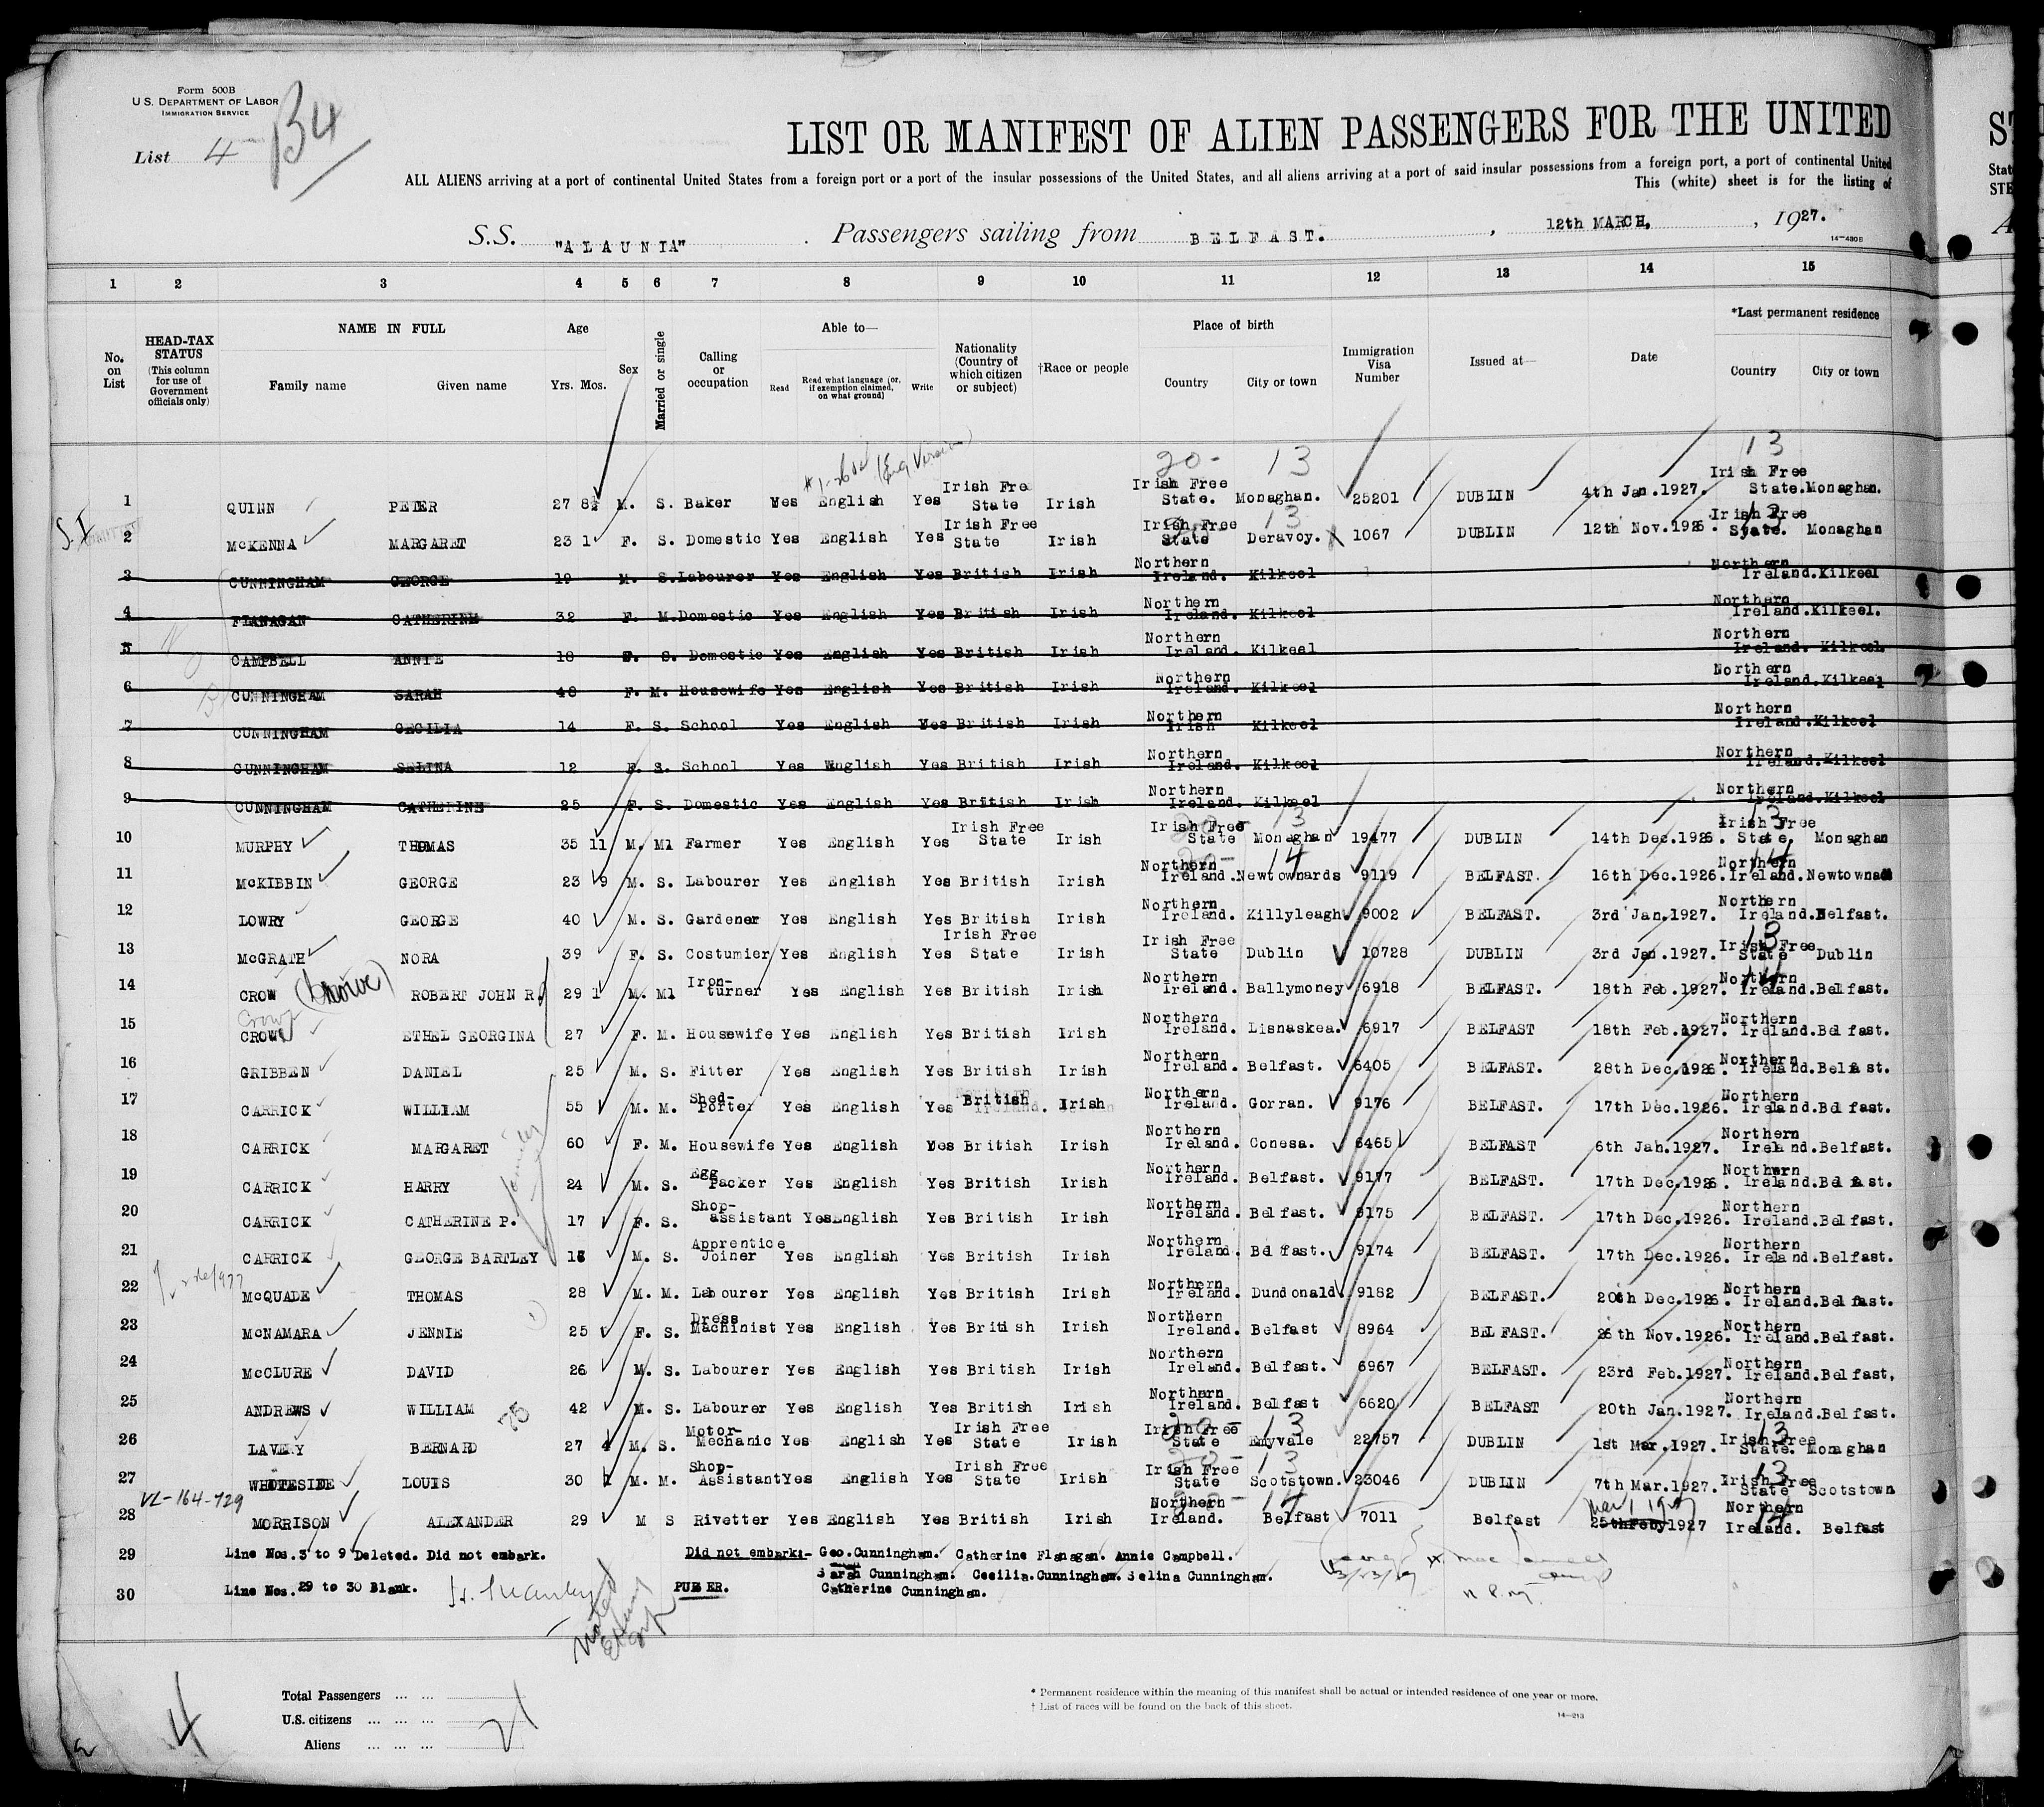 Form 500B
U. S. DEPARTMENT OF LABOR
IMMIGRATION SERVICE
List 4
B4
LIST OR MANIFEST OF ALIEN PASSENGERS FOR THE UNITED
ALL ALIENS arriving at a port of continental United States from a foreign port or a port of the insular possessions of the United States, and all aliens arriving at a port of said insular possessions from a foreign port, a port of continental United
This (white) sheet is for the listing of
S.S. "ALAUNIA" . Passengers sailing from BELFAST. , 12th MARCH, , 1927.
14-430B
1 2 3 4 5 6 7 8 9 10 11 12 13 14 15
No. on List
HEAD-TAX STATUS (This column for use of Government officials only)
NAME IN FULL
Family name Given name
Age
Yrs. Mos.
Sex
Married or single
Calling or occupation
Able to—
Read
Read what language (or, if exemption claimed, on what ground)
Write
Nationality (Country of which citizen or subject)
†Race or people
Place of birth
Country City or town
Immigration Visa Number
Issued at—
Date
*Last permanent residence
Country City or town
20- 13 13
1 QUINN PETER 27 M. S. Baker Yes English Yes Irish Fre State Irish Irish Free State. Monaghan. 25201 DUBLIN 4th Jan.1927. Irish Free State. Monaghan.
S.I
2 McKENNA MARGARET 23 1 F. S. Domestic Yes English Yes Irish Free State Irish Irish Free State Deravoy. 1067 DUBLIN 12th Nov.1926. Irish Free State. Monaghan
3 CUNNINGHAM GEORGE 19 M. S. Labourer Yes English Yes British Irish Northern Ireland. Kilkeel Northern Ireland. Kilkeel
4 FLANAGAN CATHERINE 32 F. M. Domestic Yes English Yes British Irish Northern Ireland. Kilkeel Northern Ireland. Kilkeel.
5 CAMPBELL ANNIE 18 F. S. Domestic Yes English Yes British Irish Northern Ireland. Kilkeel Northern Ireland. Kilkeel.
6 CUNNINGHAM SARAH 48 F. M. Housewife Yes English Yes British Irish Northern Ireland. Kilkeel Northern Ireland. Kilkeel
7 CUNNINGHAM CECILIA 14 F. S. School Yes English Yes British Irish Northern Irish Kilkeel Northern Ireland. Kilkeel
8 CUNNINGHAM SELINA 12 F. S. School Yes English Yes British Irish Northern Ireland. Kilkeel Northern Ireland. Kilkeel
9 CUNNINGHAM CATHERINE 25 F. S. Domestic Yes English Yes British Irish Northern Ireland. Kilkeel Northern Ireland. Kilkeel
10 MURPHY THOMAS 35 11 M. Ml Farmer Yes English Yes Irish Free State Irish Irish Free State Monaghan 19477 DUBLIN 14th Dec.1926. Irish Free State. Monaghan
11 McKIBBIN GEORGE 23 9 M. S. Labourer Yes English Yes British Irish Northern Ireland. Newtownards 9119 BELFAST. 16th Dec.1926. Northern Ireland. Newtownads
12 LOWRY GEORGE 40 M. S. Gardener Yes English Yes British Irish Northern Ireland. Killyleagh 9002 BELFAST. 3rd Jan.1927. Northern Ireland. Belfast.
13 McGRATH NORA 39 F. S. Costumier Yes English Yes Irish Free State Irish Irish Free State Dublin 10728 DUBLIN 3rd Jan.1927. Irish Free State Dublin
14 CROW (Crowe) ROBERT JOHN R. 29 1 M. Ml Iron-turner Yes English Yes British Irish Northern Ireland. Ballymoney 6918 BELFAST. 18th Feb.1927. Northern Ireland. Belfast.
Crowe
15 CROW ETHEL GEORGINA 27 F. M. Housewife Yes English Yes British Irish Northern Ireland. Lisnaskea. 6917 BELFAST 18th Feb.1927. Northern Ireland. Belfast.
16 GRIBBEN DANIEL 25 M. S. Fitter Yes English Yes British Irish Northern Ireland. Belfast. 6405 BELFAST. 28th Dec.1926. Northern Ireland. Belfast.
17 CARRICK WILLIAM 55 M. M. Shed-Porter Yes English Yes British Irish Northern Ireland. Gorran. 9176 BELFAST. 17th Dec.1926. Northern Ireland. Belfast.
18 CARRICK MARGARET 60 F. M. Housewife Yes English Yes British Irish Northern Ireland. Conesa. 6465 BELFAST 6th Jan.1927. Northern Ireland. Belfast.
19 CARRICK HARRY 24 M. S. Egg Packer Yes English Yes British Irish Northern Ireland. Belfast. 9177 BELFAST. 17th Dec.1926. Northern Ireland. Belfast.
20 CARRICK CATHERINE P. 17 F. S. Shop-assistant Yes English Yes British Irish Northern Ireland. Belfast. 9175 BELFAST. 17th Dec.1926. Northern Ireland. Belfast.
21 CARRICK GEORGE BARTLEY M. S. Apprentice Joiner Yes English Yes British Irish Northern Ireland. Belfast. 9174 BELFAST. 17th Dec.1926. Northern Ireland. Belfast.
22 McQUADE THOMAS 28 M. M. Labourer Yes English Yes British Irish Northern Ireland. Dundonald 9182 BELFAST. 20th Dec.1926. Northern Ireland. Belfast.
23 McNAMARA JENNIE 25 F. S. Dress Machinist Yes English Yes British Irish Northern Ireland. Belfast 8964 BELFAST. 26th Nov.1926. Northern Ireland. Belfast.
24 McCLURE DAVID 26 M. S. Labourer Yes English Yes British Irish Northern Ireland. Belfast. 6967 BELFAST. 23rd Feb.1927. Northern Ireland. Belfast.
25 ANDREWS WILLIAM 42 M. S. Labourer Yes English Yes British Irish Northern Ireland. Belfast 6620 BELFAST 20th Jan.1927. Northern Ireland. Belfast.
26 LAVERY BERNARD 27 4 M. S. Motor-Mechanic Yes English Yes Irish Free State Irish Irish Free State Emyvale 22757 DUBLIN 1st Mar.1927. Irish Free State. Monaghan
27 WHITESIDE LOUIS 30 1 M. M. Shop-Assistant Yes English Yes Irish Free State Irish Irish Free State Scotstown. 23046 DUBLIN 7th Mar.1927. Irish Free State Scotstown
VL-164-729
28 MORRISON ALEXANDER 29 M S Rivetter Yes English Yes British Irish Northern Ireland. Belfast 7011 Belfast 25thFeby1927 Mar 1 1927 Northern Ireland. Belfast
29 Line Nos. 3 to 9 Deleted. Did not embark. Did not embark:- Geo.Cunningham. Catherine Flanagan. Annie Campbell.
Sarah Cunningham. Cecilia.Cunningham. Selina Cunningham.
30 Line Nos. 29 to 30 Blank. PURSER. Catherine Cunningham.
Total Passengers ... ...
U.S. citizens ... ... ...
Aliens ... ... ...
21
4
* Permanent residence within the meaning of this manifest shall be actual or intended residence of one year or more.
† List of races will be found on the back of this sheet.
14-213